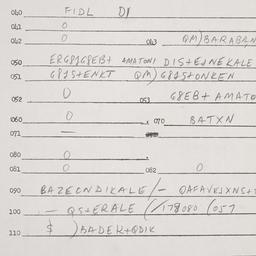 040 FIDL D1
041 O
042 O 043 QM)BARABAN
050 ERG81G8EB+ AMATONI DIS+EJNEKALE
051 G81S+ENKT QM)G81S+ONKEN
052 O 053 G8EB+AMATO
060 O 070 BATXN
071 —
080 O
081 O 082 O
090 BAZECNDIKALE/— QAFAVKJXNS+
100 — QS+ERALE (/178080 (057
110 $ )BADEK+QDIK